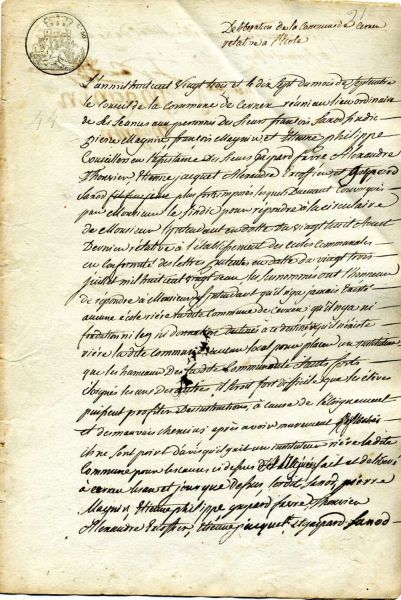 Déliberation de la Commune de Cernex
relative à l'Ecole
L'an mil huit cent vingt trois et le dix sept du mois de Septembre
le Conseil de la Commune de Cernex réuni au lieu ordinaire
de ses séances aux personnes du sieur françois Sanod sindic
pierre Magnin françois Magnin et Etienne philippe
Conseillers en l'assistance des sieurs Gaspard favre Alexandre
Thouvier Etienne jacquet Alexandre Excoffier et Gaspard
Sanod plus forts imposés lesquels Duement Convoqués
par Monsieur le sindic pour répondre à la circulaire
de Monsieur l'Intendant en datte du vingt huit Aoust
Dernier relative à l'établissement des ecoles communales
en conformité des lettres patentes en datte du vingt trois
juillet mil huit cent vingt deux les susnommés ont l'honneur
de répondre à Monsieur l'Intendant qu'il n'y a jamais existé
aucune école rière la dite Commune de cernex qu'il n'y a ni
fondation ni leg ni donnation destinés à ce dernier qu'il n'existe
rière la dite commune aucun local pour placer un instituteur
que les hameaux de la dite Communauté étants forts
éloignés les uns des autres, il seroit fort difficile que les élèves
puissent profiter des instructions, à cause de l'éloignement
et des mauvais chemins après avoir murement Réfléchis
ils ne sont point d'avis qu'il y ait un instituteur rière la dite
Commune pour les causes ci dessus Ainsi fait et délibéré
à cernex les an et jour que Dessus Sanod, pierre
Magnin, Etienne philippe gaspard favre, Thouvier
Alexandre Excoffier, Etienne jacquet, et gaspard Sanod